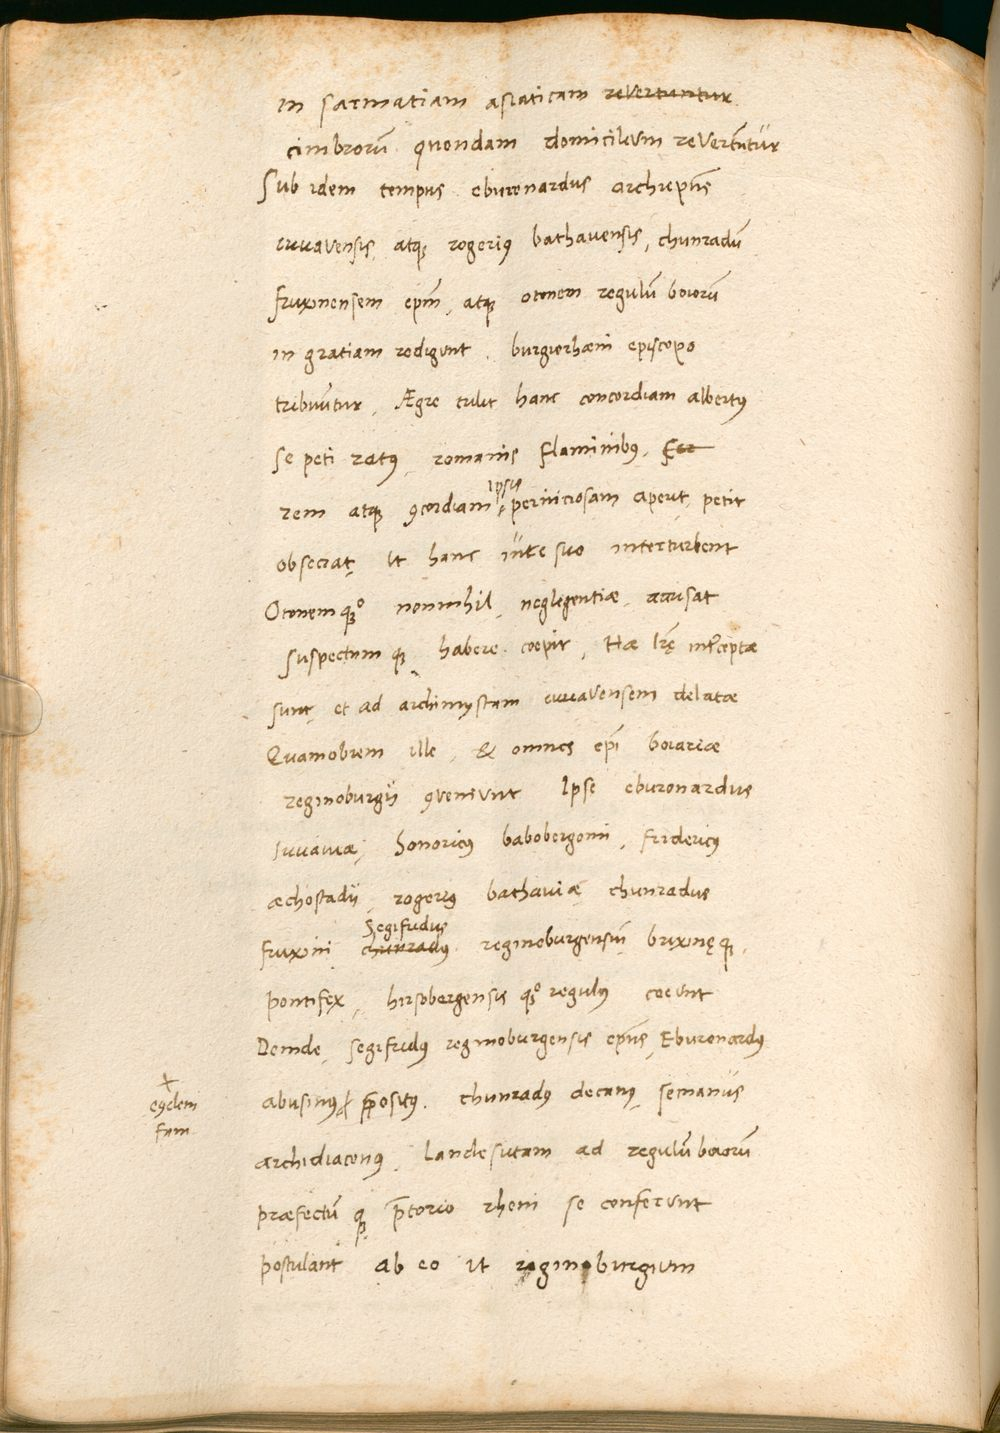 in sarmatiam asiaticam revertuntur
cimbrorū quondam domicilium revertūtur
Sub idem tempus eburonardus archiep̄us
iuvavensis atqꝫ rogeriꝰ bathavensis, chunradū
fruxinensem ep̄m, atqꝫ otonem regulū boiorū
in gratiam redigunt. burgierhaim episcopo
tribuūtur, Ægre tulit hanc concordiam albertꝰ
se peti ratꝰ romanis flaminibꝰ,
rem atqꝫ ꝯcordiam ipsis perniciosam aperit, petit
obsecrat, ut hanc iure suo interturbent
Otonemqꝫ nonnihil neglegentiæ accusat
suspectumqꝫ habere coepit, Hæ lr̄ę int̄ceptæ
sunt, et ad archimystam iuvavensem delatæ
Quamobrem ille, & omnes ep̄i boiariæ
reginoburgii ꝯveniunt Ipse eburonardus
iuvaviæ, honoricꝰ babobergomi, fridericꝰ
æchostadii, rogeriꝰ bathaviæ chunradus
Segifridus
fruxini chunradꝰ reginoburgensiū brixinęqꝫ.
pontifex, hirsobergensis qꝫ regulꝰ coeunt
Deinde, segifridꝰ reginoburgensis ep̄us, Eburonardꝰ
abusinꝰ p̄positꝰ. chunradꝰ decanꝰ,
eꝰdem
fam
archidiaconꝰ, landesutam ad regulū boiorū
præfectū qꝫ p̄torio rheni se conferunt
postulant ab eo ut reginoburgium